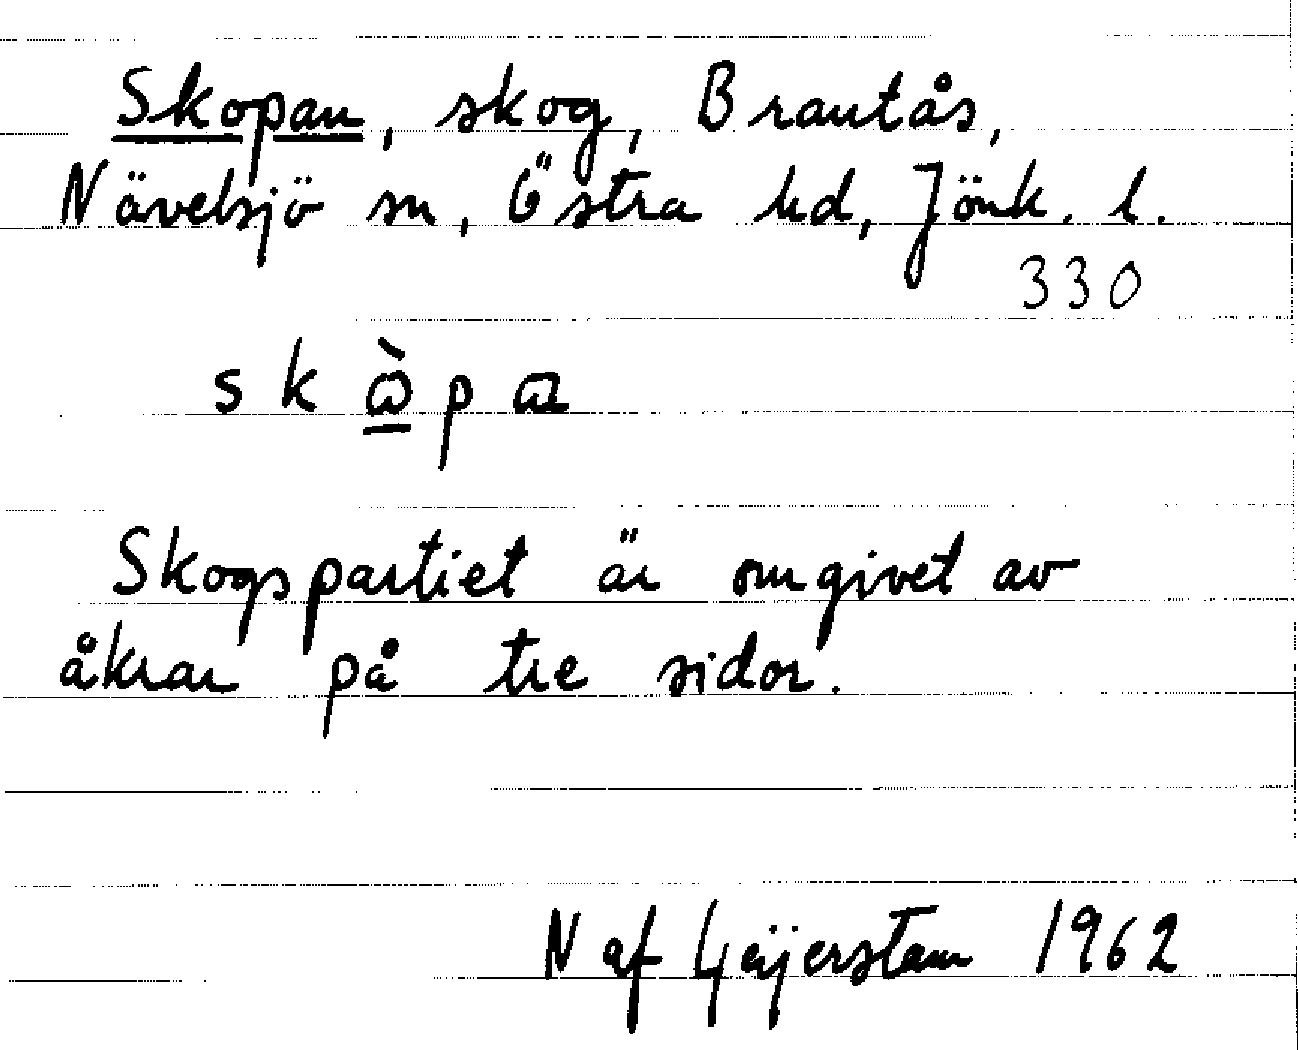 Skopan, skog, Brantås,
Nävelsjö sn, Östra hd, Jönk. l.
330
Skogspartiet är omgivet av
åkrar på tre sidor.
N af Geijerstam 1962